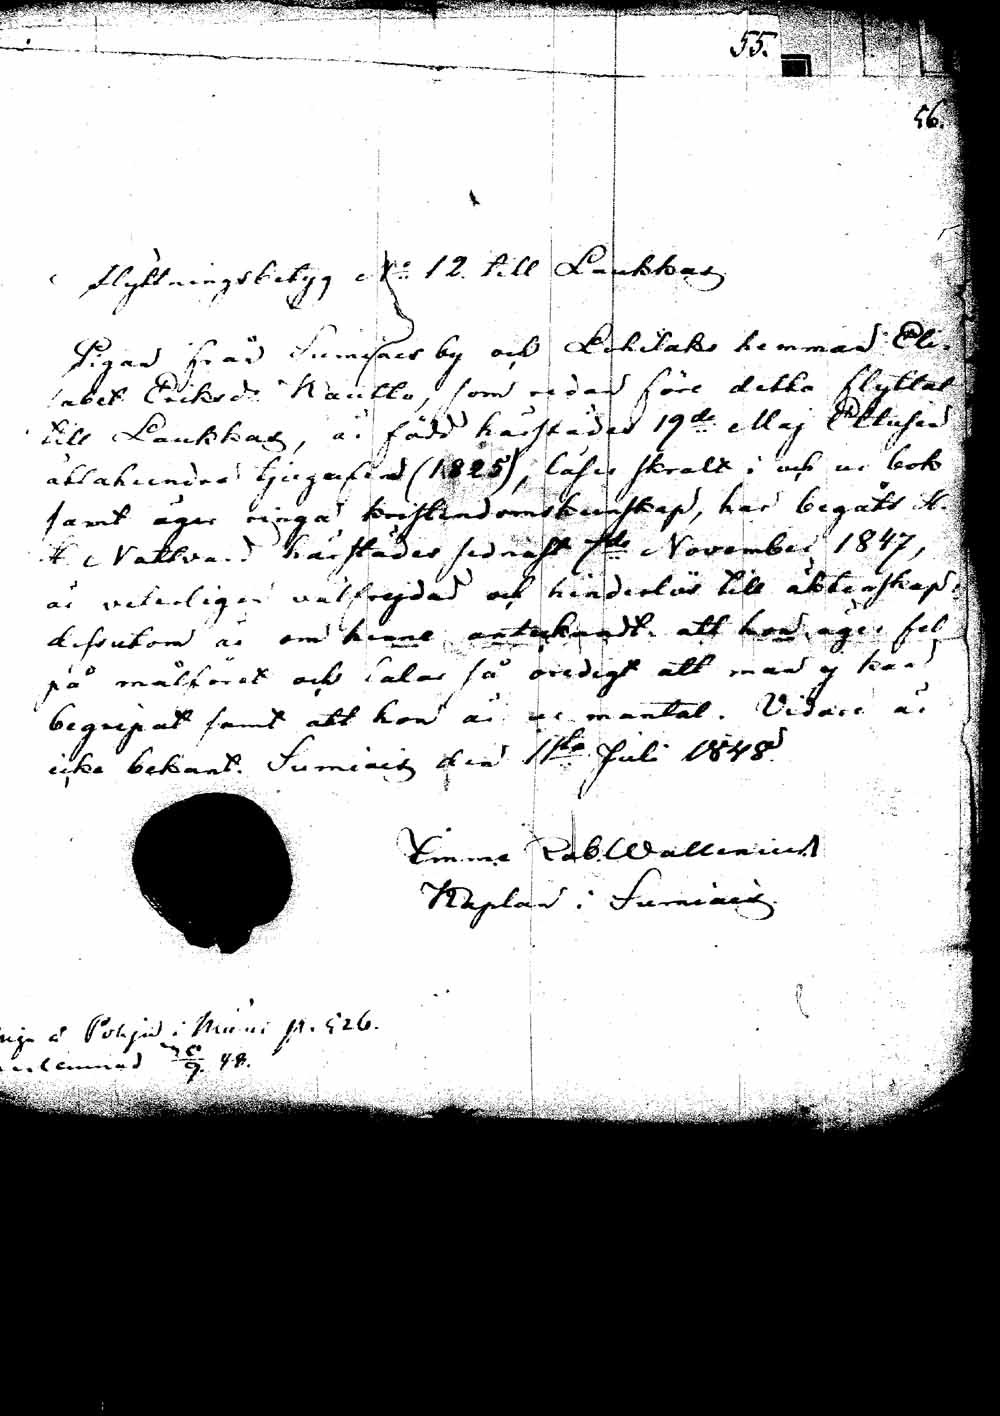 55.
56.
Flyttningsbetyg No 12. till Laukkas
Pigan från Sumiais by och Lehilaks hemman Eli-
sabet Eriksdr Kautto, som redan före detta flyttat
till Laukkas, är född härstädes 19de Maj Ettusen
åttahundra tjugufem (1825), läser skralt i och ur bok
samt äger ringa kristendomskunskap, har begått H.
H. Nattvard härstädes sednast 7de November 1847,
är veterligen välfrejdad och hinderlös till äktenskap;
dessutom är om henne antecknadt att hon äger fel
på målföret och talar så oredigt att man ej kan
begripat samt att hon är ur mantal. Vidare är
icke bekant. Sumiais den 11te Juli 1848.
Rab. Wallenius
Kaplan i Sumiais.
å Pohja i p. 526.
48.